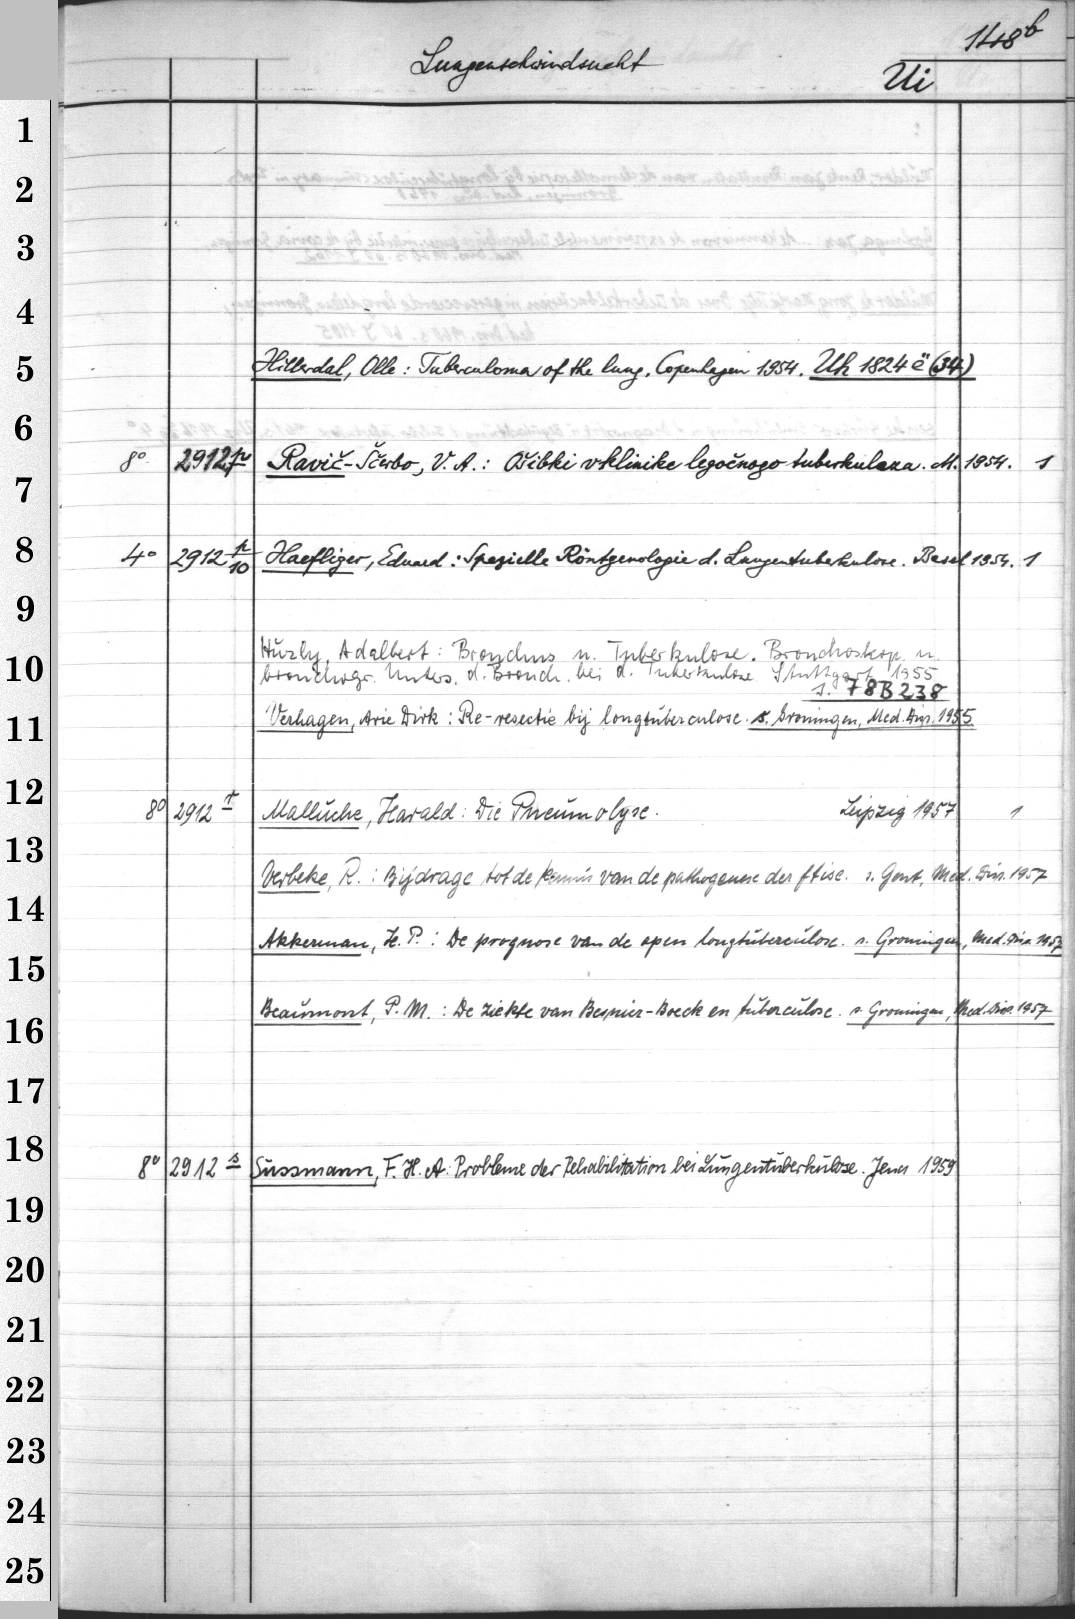 148b
Lungenschwindsucht
Ui
1
2
3
4
5 Hillerdal, Olle: Tuberculoma of the lung. Copenhagen 1954. Uh 1824 ë (34)
6
8° 2912 Ravič-Ščerbo, V. A.: Ošibki v klinike legočnogo tuberkuleza. M. 1954. 1
7
8 4° 2912 r/10 Haefliger, Eduard: Spezielle Röntgenologie d. Lungentuberkulose. Basel 1954. 1
9
Huzly, Adalbert: Bronchus u. Tuberkulose. Bronchoskop. u.
10 bronchogr. Unters. d. Bronch. bei d. Tuberkulose Stuttgart 1955
s. 78B238
11 Verhagen, Arie Dirk: Re-resectie bij longtuberculose. s. Groningen, Med. Diss. 1955
12
8° 2912 t Malluche, Harald: Die Pneumolyse. Leipzig 1957 1
13
Verbeke, R.: Bijdrage tot de kennis van de pathogenese der ftise. s. Gent, Med. Diss. 1957
14
Akkerman, H. P.: De prognose van de open longtuberculose. s. Groningen, Med. Diss. 1957
15
16 Beaumont, P. M.: De ziekte van Besnier-Boeck en tuberculose. s. Groningen, Med. Diss. 1957
17
18 8° 2912 s Sussmann, F. H. A: Probleme der Rehabilitation bei Lungentuberkulose. Jena 1959
19
20
21
22
23
24
25